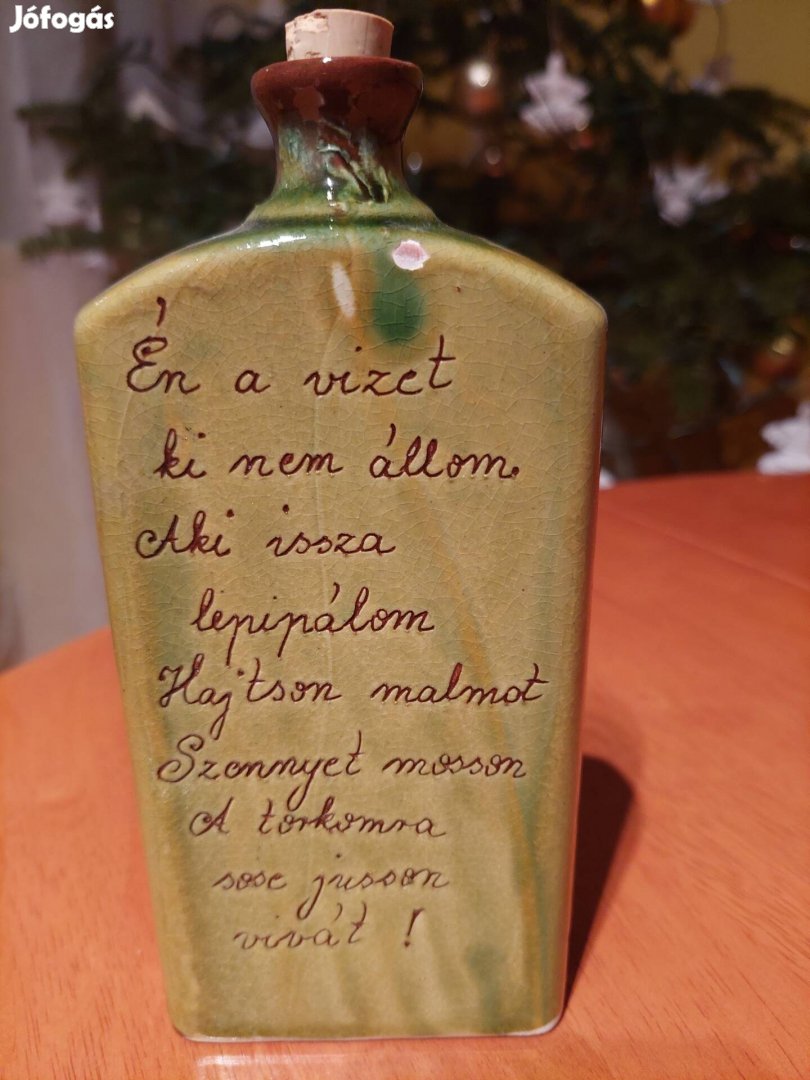 Jófogás
Én a vizet
ki nem állom.
Aki issza
lepipálom
Hajtson malmot
Szennyet mosson
A torkomra
sose jusson
vivát !